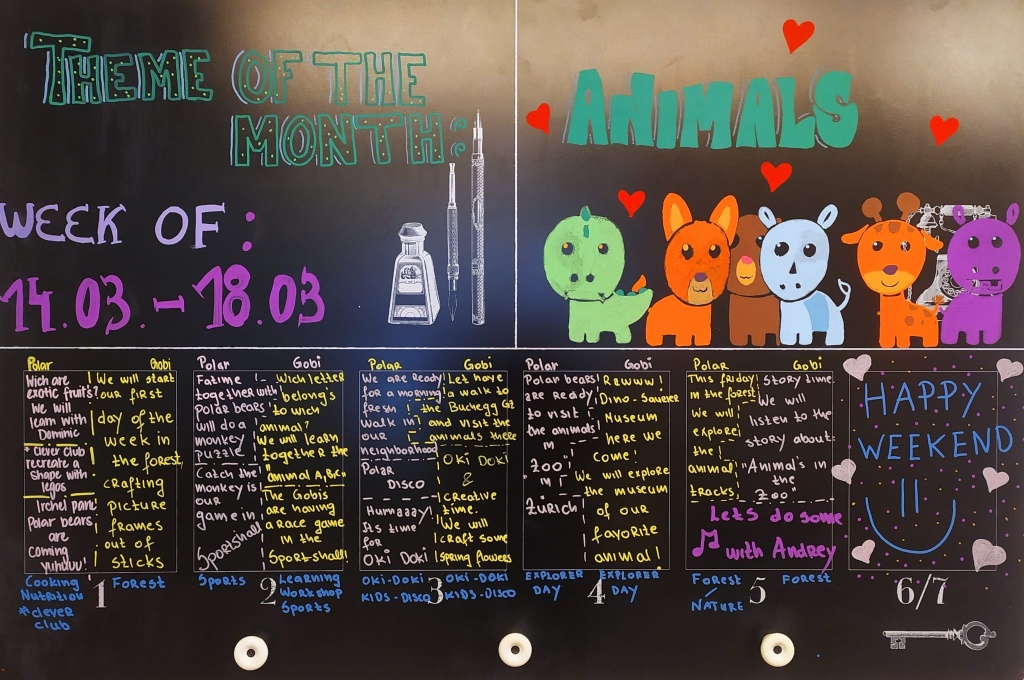 THEME OF THE
MONTH:
ANIMALS
WEEK OF:
14.03. - 18.03
Polar
Wich are
exotic fruits?
We will
learn with
Dominic
* Clever Club
recreate a
shape with
legos
Irchel park
Polar bears
are
coming
yuhuuu!
Gobi
We will start
our first
day of the
week in
the forest,
crafting
picture
frames
out of
sticks
Cooking
Nutrition
* clever
club
1
Forest
Polar
Fatime
together with
Polar bears
will do a
monkey
puzzle
Catch the
monkey is
our
game in
Sportshall
Gobi
Wich letter
belongs
to wich
animal?
We will learn
together the
"animal A,B,C"
The Gobis
are having
a race game
in the
Sportshall!
Sports
2
Learning
Workshop
Sports
Polar
We are Ready
for a morning
fresh
Walk in
our
neighborhood
Polar
Disco
Humaaay
its time
for
Oki Doki
Gobi
Let have
a walk to
the Buchegg GZ
and visit the
animals there
Oki Doki
&
Creative
time.
We will
craft some
spring flowers
Oki-Doki
Kids-Disco
3
Oki-Doki
Kids-Disco
Polar
Polar bears
are ready
to visit
the animals
in
Zoo
in
Zürich
Gobi
Rawww!
Dino-Saurier
Museum
here we
come!
We will explore
the museum
of our
favorite
animal!
Explorer
Day
4
Explorer
Day
Polar
This friday
in the forest
we will
explore
the
animal
tracks
Gobi
Story time.
We will
listen to the
story about:
"Animal's in
the
Zoo"
Let's do some
with Andrey
Forest
Nature
5
Forest
HAPPY
WEEKEND
6/7